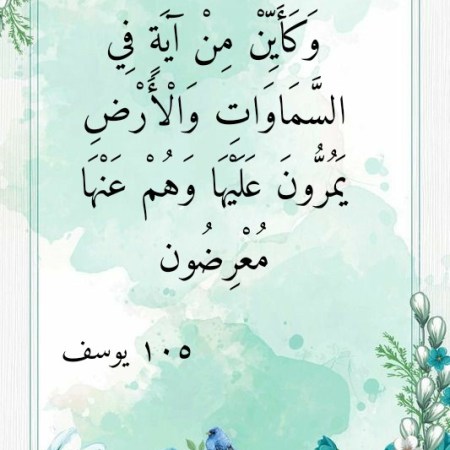 وَكَأَيِّنْ مِنْ آيَةٍ فِي
السَّمَاوَاتِ وَالْأَرْضِ
يَمُرُّونَ عَلَيْهَا وَهُمْ عَنْهَا
مُعْرِضُون
١٠٥ يوسف